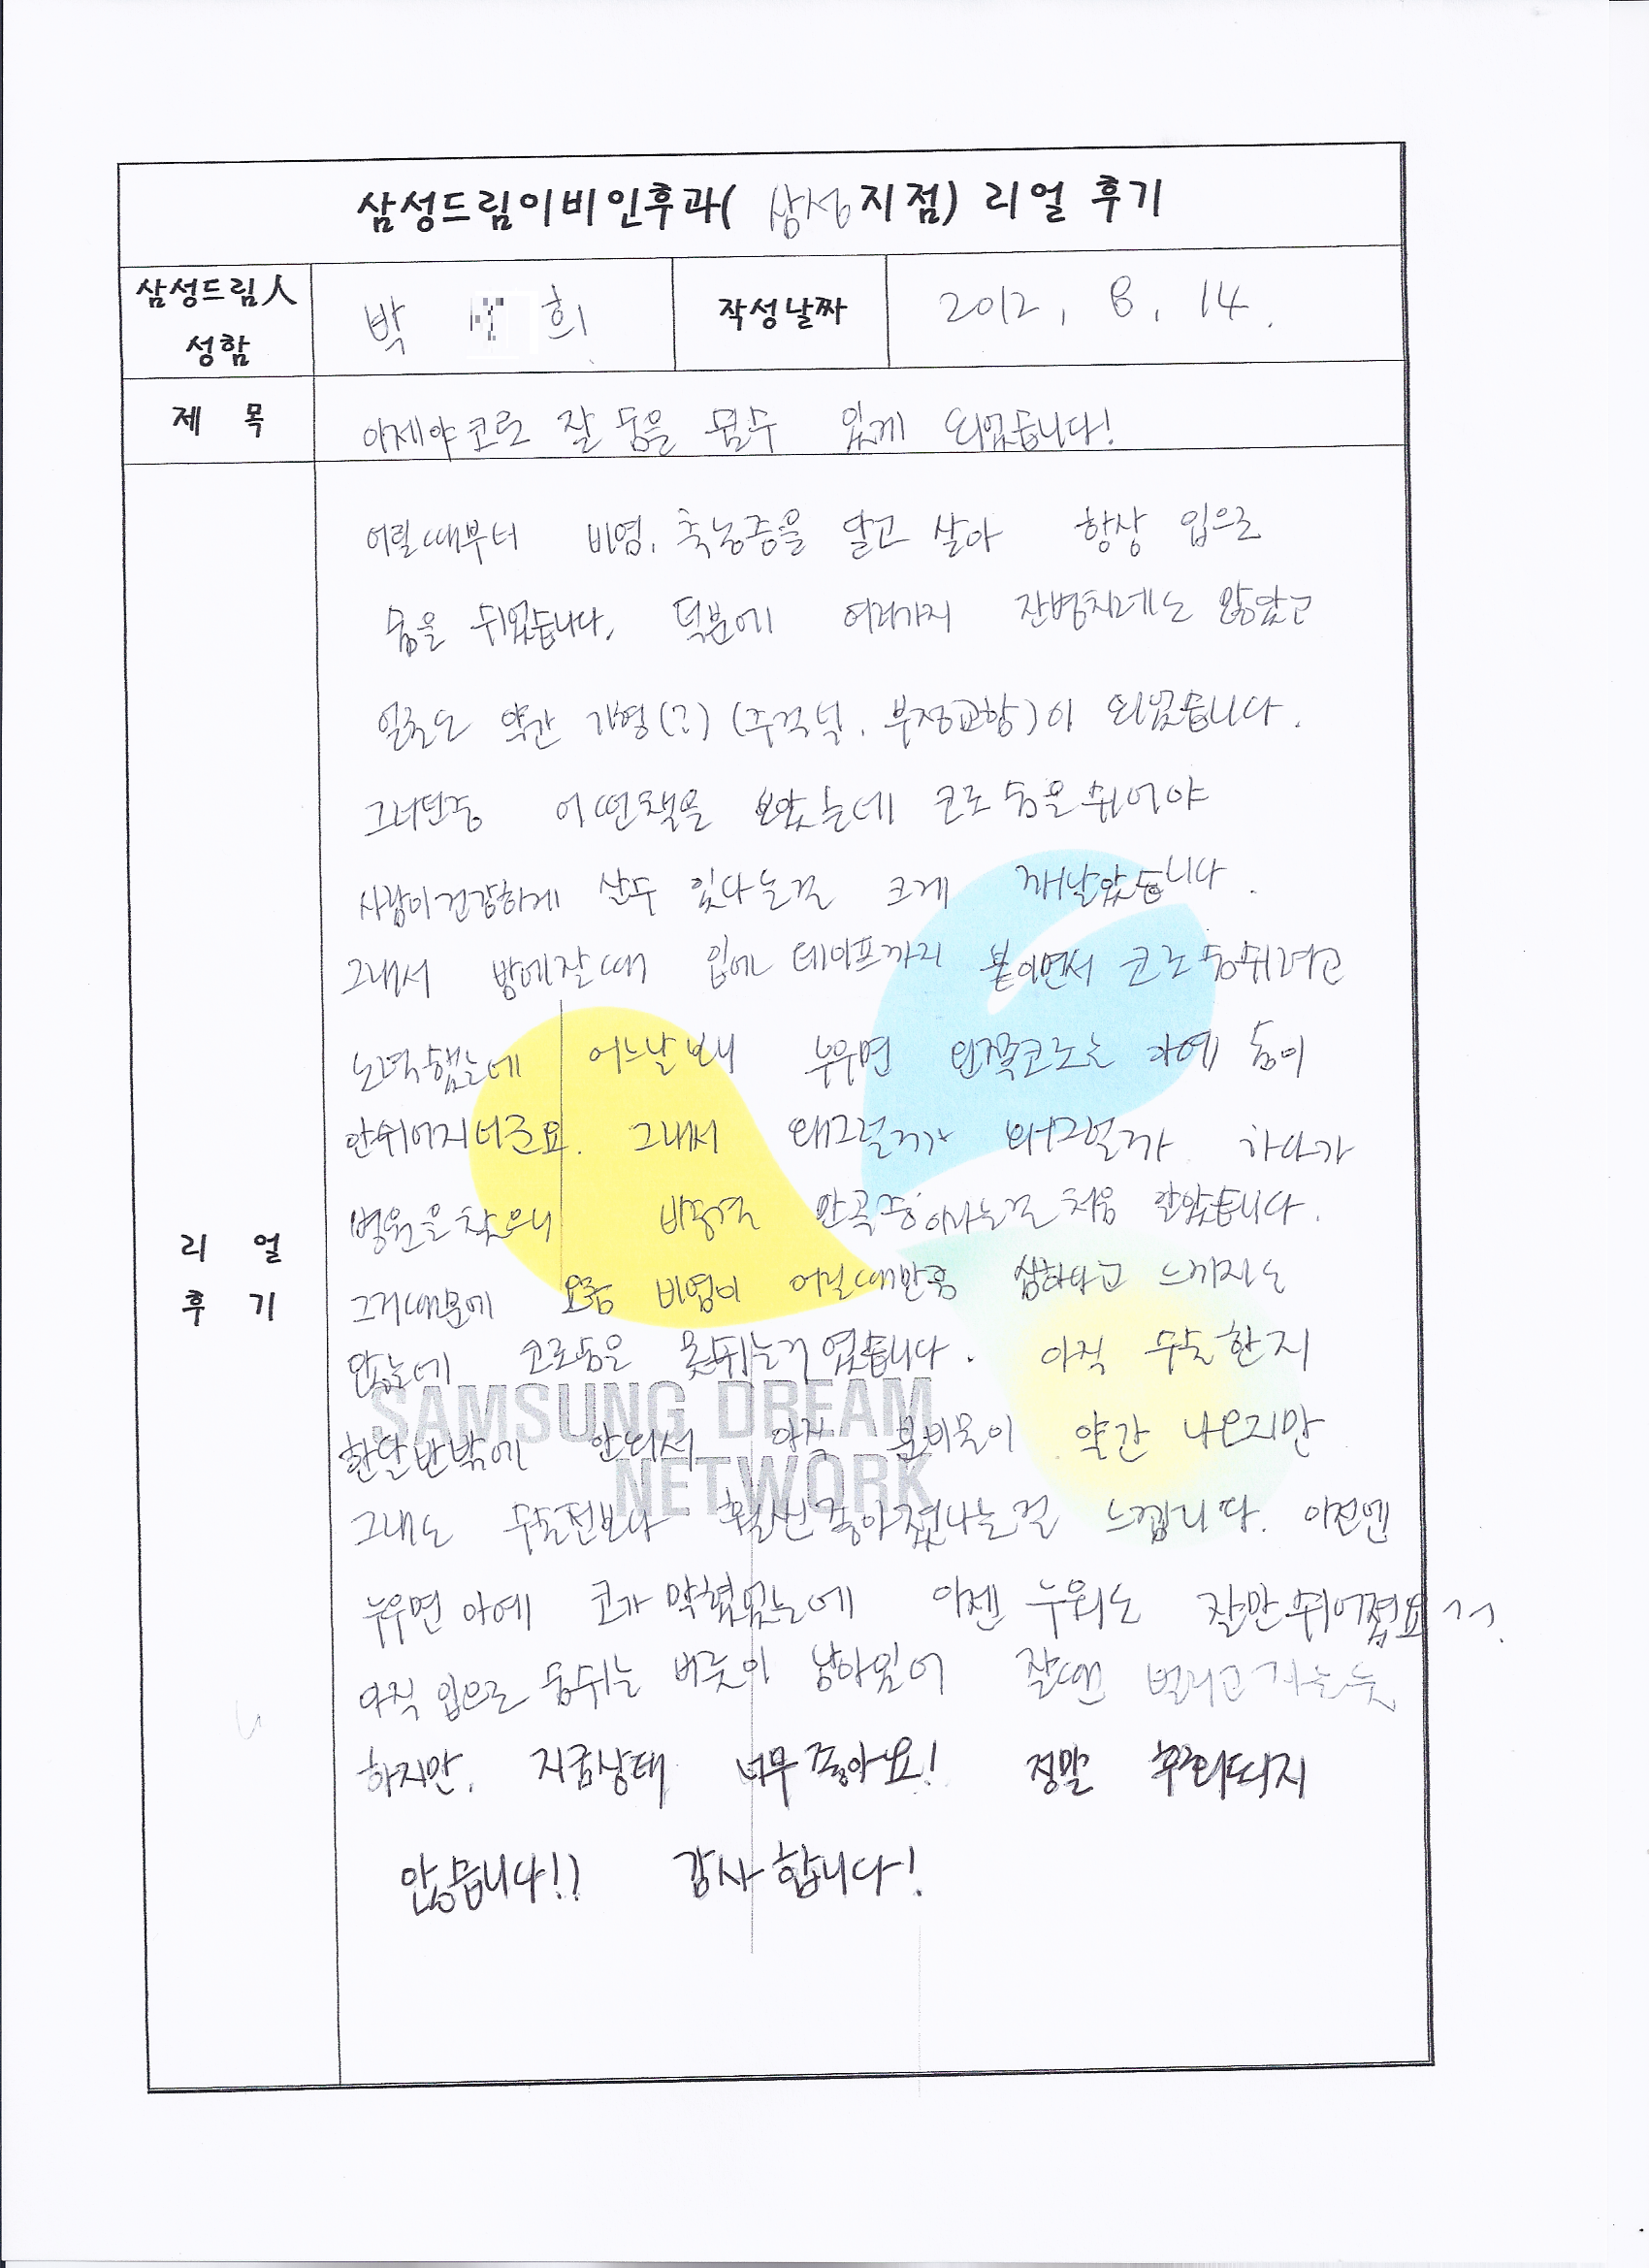 삼성드림이비인후과( 삼성지점) 리얼 후기
삼성드림人 성함
박 희
작성날짜
2012. 8. 14.
제 목
이제야 코로 잘 숨을 쉴수 있게 되었습니다!
리 얼 후 기
어릴때부터 비염, 축농증을 달고 살아 항상 입으로
숨을 쉬었습니다. 덕분에 여러가지 잔병치레도 많았고
얼굴도 약간 기형(?) (주걱턱, 부정교합)이 되었습니다.
그러던중 어떤책을 보았는데 코로 숨을 쉬어야
사람이 건강하게 살수 있다는걸 크게 깨달았습니다.
그래서 밤에 잘때 입에 테이프까지 붙이면서 코로 숨쉬려고
노력했는데 어느날보니 누우면 왼쪽코로는 아예 숨이
안쉬어지더군요. 그래서 왜그럴까 왜그럴까 하다가
병원을 찾으니 비중격 만곡증이라는걸 처음 알았습니다.
그거때문에 요즘 비염이 어릴때만큼 심하다고 느끼지는
않는데 코로숨을 못쉬는거였습니다. 아직 수술한지
한달반밖에 안되서 아직 콧물이 약간 나오지만
그래도 수술전보다 훨씬 좋아졌다는걸 느낍니다. 이전엔
누우면 아예 코가 막혔었는데 이젠 누워도 잘만 쉬어져요 ㄱㄱ.
아직 입으로 숨쉬는 버릇이 남아있어 잘땐 벌리고 자는듯
하지만, 지금상태 너무 좋아요! 정말 후회되지
않습니다!! 감사합니다!
SAMSUNG DREAM
NETWORK